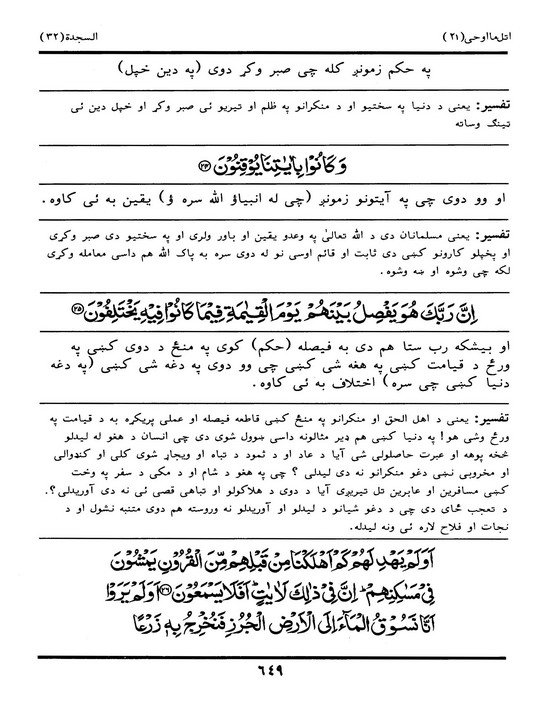 اتل ما اوحی (۲۱)
السجدة (۳۲)
په حکم زمونږ کله چی صبر وکړ دوی (په دین خپل)
تفسیر: یعنی د دنیا په سختیو او د منکرانو په ظلم او تیریو ئی صبر وکړ او خپل دین ئی
تینګ وساته
وَكَانُوْا بِاٰيٰتِنَا يُوْقِنُوْنَ ﴿۲۴﴾
او وو دوی چی په آیتونو زمونږ (چی له انبیاؤ الله سره ؤ) یقین به ئی کاوه.
تفسیر: یعنی مسلمانان دی د الله تعالیٰ په وعدو یقین او باور ولری او په سختیو دی صبر وکړی
او پخپلو کارونو کښی دی ثابت او قائم اوسی نو له دوی سره به پاک الله هم داسی معامله وکړی
لکه چی وشوه او ښه وشوه.
اِنَّ رَبَّكَ هُوَ يَفْصِلُ بَيْنَهُمْ يَوْمَ الْقِيٰمَةِ فِيْمَا كَانُوْا فِيْهِ يَخْتَلِفُوْنَ ﴿۲۵﴾
او بیشکه رب ستا هم دی به فیصله (حکم) کوی په منځ د دوی کښی په
ورځ د قیامت کښی په هغه شی کښی چی وو دوی په دغه شی کښی (په دغه
دنیا کښی چی سره) اختلاف به ئی کاوه.
تفسیر: یعنی د اهل الحق او منکرانو په منځ کښی قاطعه فیصله او عملی پریکړه به د قیامت په
ورځ وشی هو! په دنیا کښی هم ډیر مثالونه داسی ښوول شوی دی چی انسان د هغو له لیدلو
څخه پوهه او عبرت حاصلولی شی آیا د عاد او د ثمود د تباه او ویجاړ شوی کلی او کنډوالی
او مخروبی نښی دغو منکرانو نه دی لیدلی ؟ چی په هغو د شام او د مکی د سفر په وخت
کښی مسافرین او عابرین تل تیریږی آیا د دوی د هلاکولو او تباهی قصی ئی نه دی آوریدلی؟.
د تعجب ځای دی چی د دغو شیانو د لیدلو او آوریدلو نه وروسته هم دوی متنبه نشول او د
نجات او فلاح لاره ئی ونه لیدله.
اَوَلَمْ يَهْدِ لَهُمْ كَمْ اَهْلَكْنَا مِنْ قَبْلِهِمْ مِّنَ الْقُرُوْنِ يَمْشُوْنَ
فِيْ مَسٰكِنِهِمْ ؕ اِنَّ فِيْ ذٰلِكَ لَاٰيٰتٍ ؕ اَفَلَا يَسْمَعُوْنَ ﴿۲۶﴾ اَوَلَمْ يَرَوْا
اَنَّا نَسُوْقُ الْمَآءَ اِلَى الْاَرْضِ الْجُرُزِ فَنُخْرِجُ بِهٖ زَرْعًا
٦٤٩